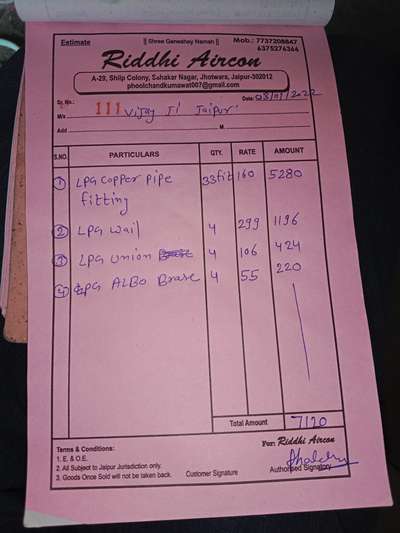 Estimate
|| Shree Ganeshay Namah ||
Mob.: 7737208847
6375376364
Riddhi Aircon
A-29, Shilp Colony, Sahakar Nagar, Jhotwara, Jaipur-302012
phoolchandkumawat007@gmail.com
Sr. No.: 111
Date: 08/11/2022
M/s Vijay Ji Jaipur
Add M.
S.NO. PARTICULARS QTY. RATE AMOUNT
1 LPG Copper Pipe 33fit 160 5280
fitting
2 LPG Wail 4 299 1196
3 LPG Union 4 106 424
4 LPG ALBO Brase 4 55 220
Total Amount 7120
Terms & Conditions:
1. E. & O.E.
2. All Subject to Jaipur Jurisdiction only.
3. Goods Once Sold will not be taken back.
Customer Signature
For: Riddhi Aircon
Authorised Signatory